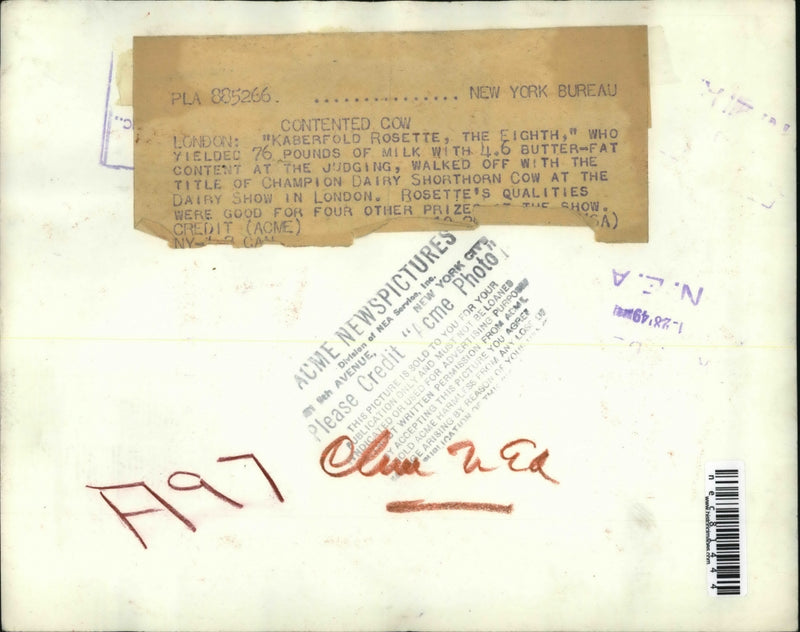 PLA 885266. ............... NEW YORK BUREAU
CONTENTED COW
LONDON: "KABERFOLD ROSETTE, THE EIGHTH," WHO
YIELDED 76 POUNDS OF MILK WITH 4.6 BUTTER-FAT
CONTENT AT THE JUDGING, WALKED OFF WITH THE
TITLE OF CHAMPION DAIRY SHORTHORN COW AT THE
DAIRY SHOW IN LONDON. ROSETTE'S QUALITIES
WERE GOOD FOR FOUR OTHER PRIZES AT THE SHOW.
CREDIT (ACME)
ACME NEWSPICTURES
Division of NEA Service, Inc.
AVENUE, NEW YORK CITY
Please Credit "Acme Photo"
THIS PICTURE IS SOLD TO YOU FOR YOUR
PUBLICATION ONLY AND MUST NOT BE LOANED
OR USED FOR ADVERTISING PURPOSES
WRITTEN PERMISSION FROM ACME.
ACCEPTING THIS PICTURE YOU AGREE
HOLD ACME HARMLESS FROM ANY LOSS OR
ARISING BY REASON OF YOUR
PUBLICATION OF
N.E.A
28'49
A97
N Ed
nec81444